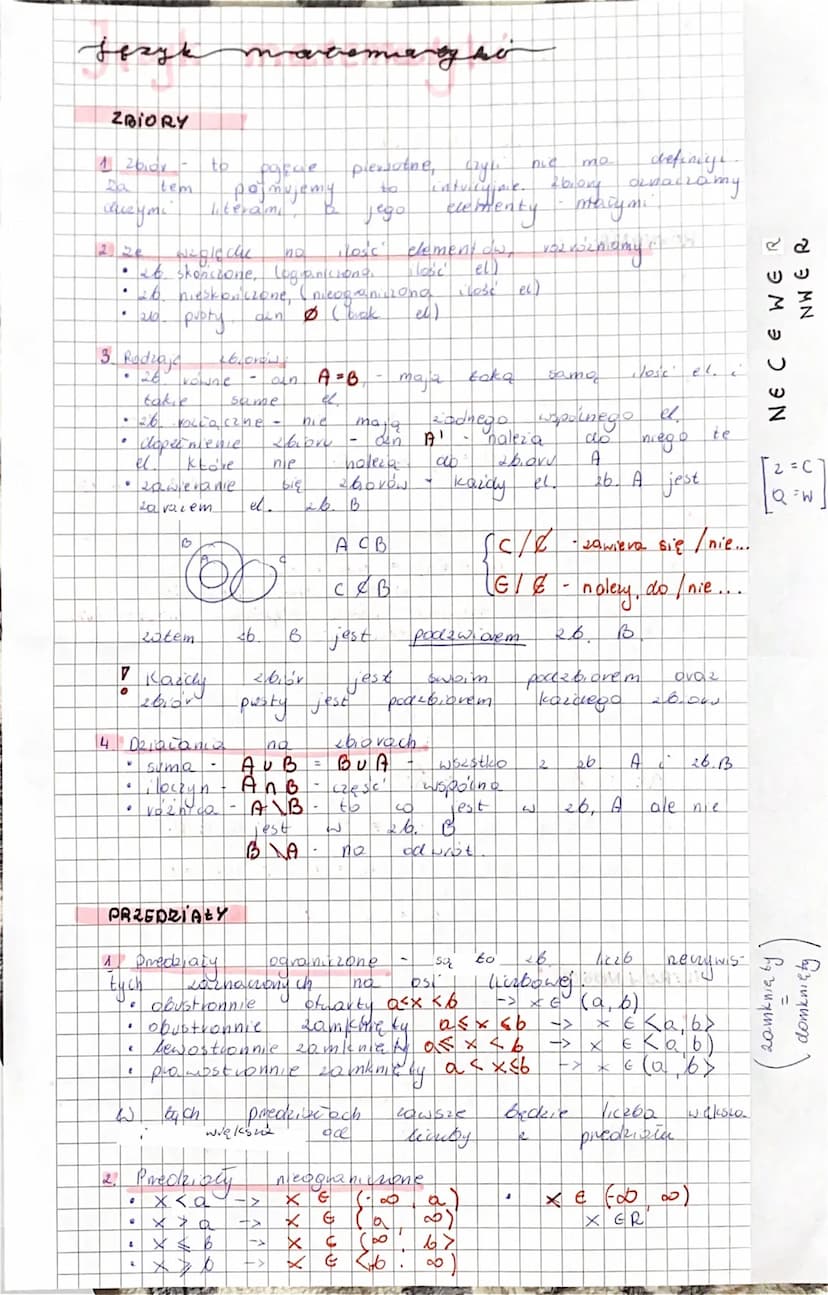 Język matematyki
ZBIORY
1. Zbiór - to pojęcie pierwotne, czyli nie ma definicji.
Za tem pojmujemy to intuicyjnie. Zbiory oznaczamy
dużymi literami, a jego elementy - małymi
2. Ze względu na ilość elementów, rozróżniamy:
• zb. skończone, (ograniczona ilość el)
• zb. nieskończone, (nieograniczona ilość el)
• zb. pusty, ozn Ø (brak el)
3. Rodzaje zbiorów:
• zb równe - ozn A=B, - mają taką samą ilość el. i
takie same el.
• zb. rozłączne - nie mają żadnego wspólnego el.
• dopełnienie zbioru - ozn A' - należą do niego te
el. które nie należą do zbioru A
• zawieranie się zbiorów - każdy el. zb. A jest
zarazem el. zb. B
B A C
A ⊂ B
C ⊄ B
⊂/⊄ - zawiera się /nie...
∈/∉ - należy do /nie...
zatem zb. B jest podzbiorem zb. B.
! Każdy zbiór jest swoim podzbiorem oraz
zbiór pusty jest podzbiorem każdego zbioru
4. Działania na zbiorach:
• suma - A ∪ B = B ∪ A - wszstko z zb A i zb.B
• iloczyn - A ∩ B - część wspólna
• różnica - A \ B - to co jest w zb, A ale nie
jest w zb. B
B \ A - na odwrót.
PRZEDZIAŁY
1. Przedziały ograniczone - są to zb. liczb rzeczywis-
tych zaznaczonych na osi liczbowej.
• obustronnie otwarty a<x<b -> x ∈ (a, b)
• obustronnie zamknięty a≤x≤b -> x ∈ <a, b>
• lewostronnie zamknięty a≤x<b -> x ∈ <a, b)
• prawostronnie zamknięty a<x≤b -> x ∈ (a, b>
W tych przedziałach zawsze będzie liczba większa
i większa od liczby z przedziału
2. Przedziały nieograniczone
• x<a -> x ∈ (-∞, a)
• x>a -> x ∈ (a, ∞)
• x≤b -> x ∈ (∞, b>
• x≥b -> x ∈ <b, ∞)
• x ∈ (-∞, ∞)
x ∈ R
NECEWER
NWER
[Z=C
Q=W]
(zamknięty
=
domknięty)